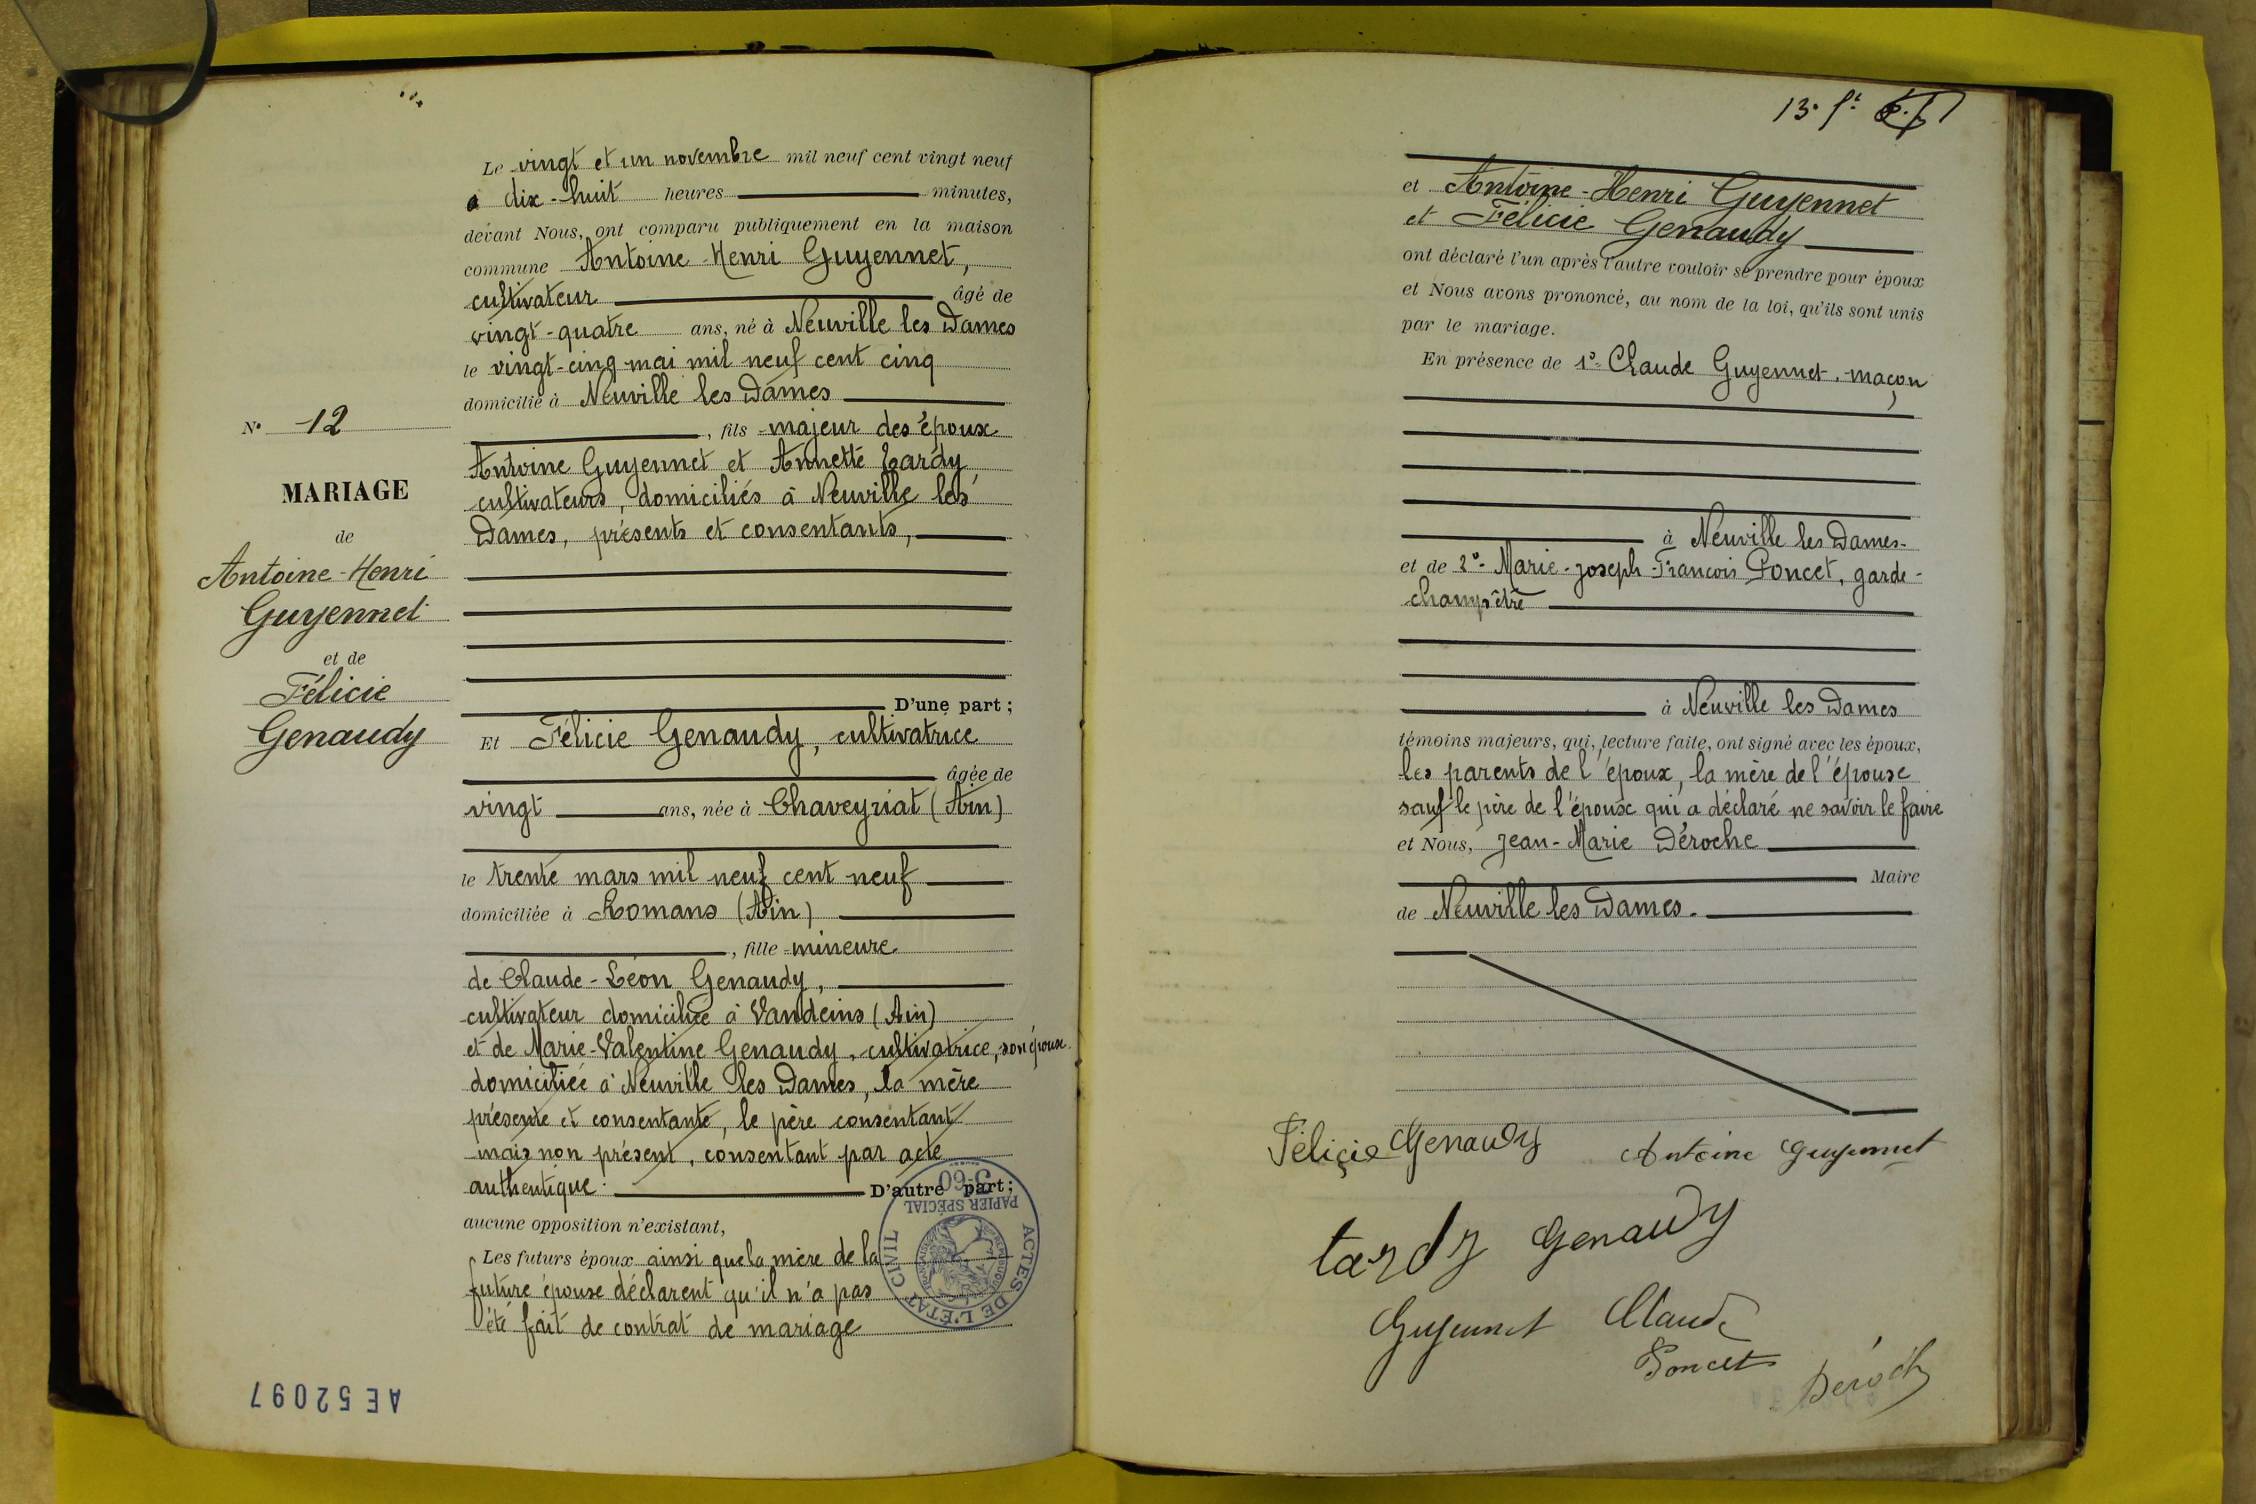 Le vingt et un novembre mil neuf cent vingt neuf
à dix-huit heures minutes,
devant Nous, ont comparu publiquement en la maison
commune Antoine-Henri Guyennet,
cultivateur âgé de
vingt-quatre ans, né à Neuville les Dames
le vingt-cinq mai mil neuf cent cinq
domicilié à Neuville les Dames
, fils majeur des époux
Antoine Guyennet et Annette Tardy
cultivateurs, domiciliés à Neuville les
Dames, présents et consentants,
D'une part ;
N° 12
MARIAGE
de
Antoine-Henri
Guyennet
et de
Félicie
Genaudy
Et Félicie Genaudy, cultivatrice
âgée de
vingt ans, née à Chaveyriat (Ain)
le trente mars mil neuf cent neuf
domiciliée à Romans (Ain)
, fille mineure
de Claude-Léon Genaudy,
cultivateur domicilié à Vandeins (Ain)
et de Marie-Valentine Genaudy, cultivatrice, son épouse
domiciliée à Neuville les Dames, la mère
présente et consentante, le père consentant
mais non présent, consentant par acte
authentique. D'autre part ;
aucune opposition n'existant,
Les futurs époux ainsi que la mère de la
future épouse déclarent qu'il n'a pas
été fait de contrat de mariage
3-60
PAPIER SPÉCIAL
ACTES DE L'ÉTAT CIVIL
RÉPUBLIQUE FRANÇAISE
AE52097
13e ft
et Antoine-Henri Guyennet
et Félicie Genaudy
ont déclaré l'un après l'autre vouloir se prendre pour époux
et Nous avons prononcé, au nom de la loi, qu'ils sont unis
par le mariage.
En présence de 1°- Claude Guyennet, maçon
à Neuville les Dames-
et de 2°- Marie-Joseph-François Poncet, garde-
champêtre
à Neuville les Dames
témoins majeurs, qui, lecture faite, ont signé avec les époux,
les parents de l'époux, la mère de l'épouse
sauf le père de l'épouse qui a déclaré ne savoir le faire
et Nous, Jean-Marie Déroche
Maire
de Neuville les Dames.
Félicie Genaudy Antoine Guyennet
tardy Genaudy
Guyennet Claude
Poncet
Déroch